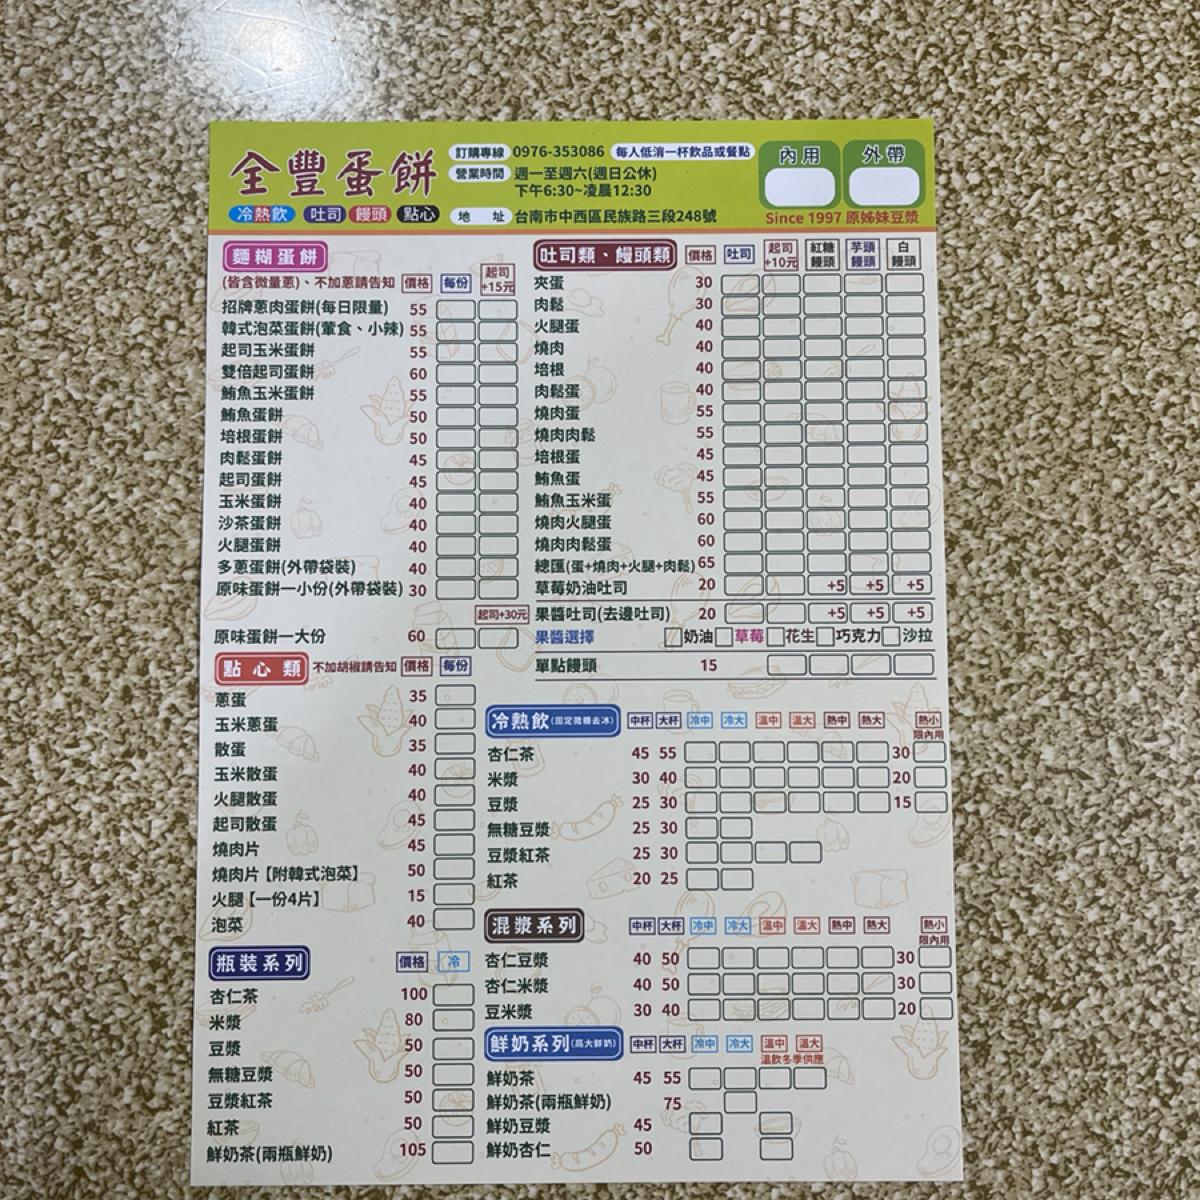 全豐蛋餅
冷熱飲 吐司 饅頭 點心
訂購專線 0976-353086 每人低消一杯飲品或餐點
營業時間 週一至週六(週日公休)
下午6:30~凌晨12:30
地 址 台南市中西區民族路三段248號
內用 外帶
Since 1997 原姊妹豆漿
麵糊蛋餅
(皆含微量蔥)、不加蔥請告知 價格 每份 起司+15元
招牌蔥肉蛋餅(每日限量) 55
韓式泡菜蛋餅(葷食、小辣) 55
起司玉米蛋餅 55
雙倍起司蛋餅 60
鮪魚玉米蛋餅 55
鮪魚蛋餅 50
培根蛋餅 50
肉鬆蛋餅 45
起司蛋餅 45
玉米蛋餅 40
沙茶蛋餅 40
火腿蛋餅 40
多蔥蛋餅(外帶袋裝) 40
原味蛋餅一小份(外帶袋裝) 30
起司+30元
原味蛋餅一大份 60
點心類 不加胡椒請告知 價格 每份
蔥蛋 35
玉米蔥蛋 40
散蛋 35
玉米散蛋 40
火腿散蛋 40
起司散蛋 45
燒肉片 45
燒肉片【附韓式泡菜】 50
火腿【一份4片】 15
泡菜 40
瓶裝系列 價格 冷
杏仁茶 100
米漿 80
豆漿 50
無糖豆漿 50
豆漿紅茶 50
紅茶 50
鮮奶茶(兩瓶鮮奶) 105
吐司類、饅頭類 價格 吐司 起司+10元 紅糖饅頭 芋頭饅頭 白饅頭
夾蛋 30
肉鬆 30
火腿蛋 40
燒肉 40
培根 40
肉鬆蛋 40
燒肉蛋 55
燒肉肉鬆 55
培根蛋 45
鮪魚蛋 45
鮪魚玉米蛋 55
燒肉火腿蛋 60
燒肉肉鬆蛋 60
總匯(蛋+燒肉+火腿+肉鬆) 65
草莓奶油吐司 20 +5 +5 +5
果醬吐司(去邊吐司) 20 +5 +5 +5
果醬選擇 奶油 草莓 花生 巧克力 沙拉
單點饅頭 15
冷熱飲(固定微糖去冰) 中杯 大杯 冷中 冷大 溫中 溫大 熱中 熱大 熱小
限內用
杏仁茶 45 55 30
米漿 30 40 20
豆漿 25 30 15
無糖豆漿 25 30
豆漿紅茶 25 30
紅茶 20 25
混漿系列 中杯 大杯 冷中 冷大 溫中 溫大 熱中 熱大 熱小
限內用
杏仁豆漿 40 50 30
杏仁米漿 40 50 30
豆米漿 30 40 20
鮮奶系列(高大鮮奶) 中杯 大杯 冷中 冷大 溫中 溫大
溫飲冬季供應
鮮奶茶 45 55
鮮奶茶(兩瓶鮮奶) 75
鮮奶豆漿 45
鮮奶杏仁 50